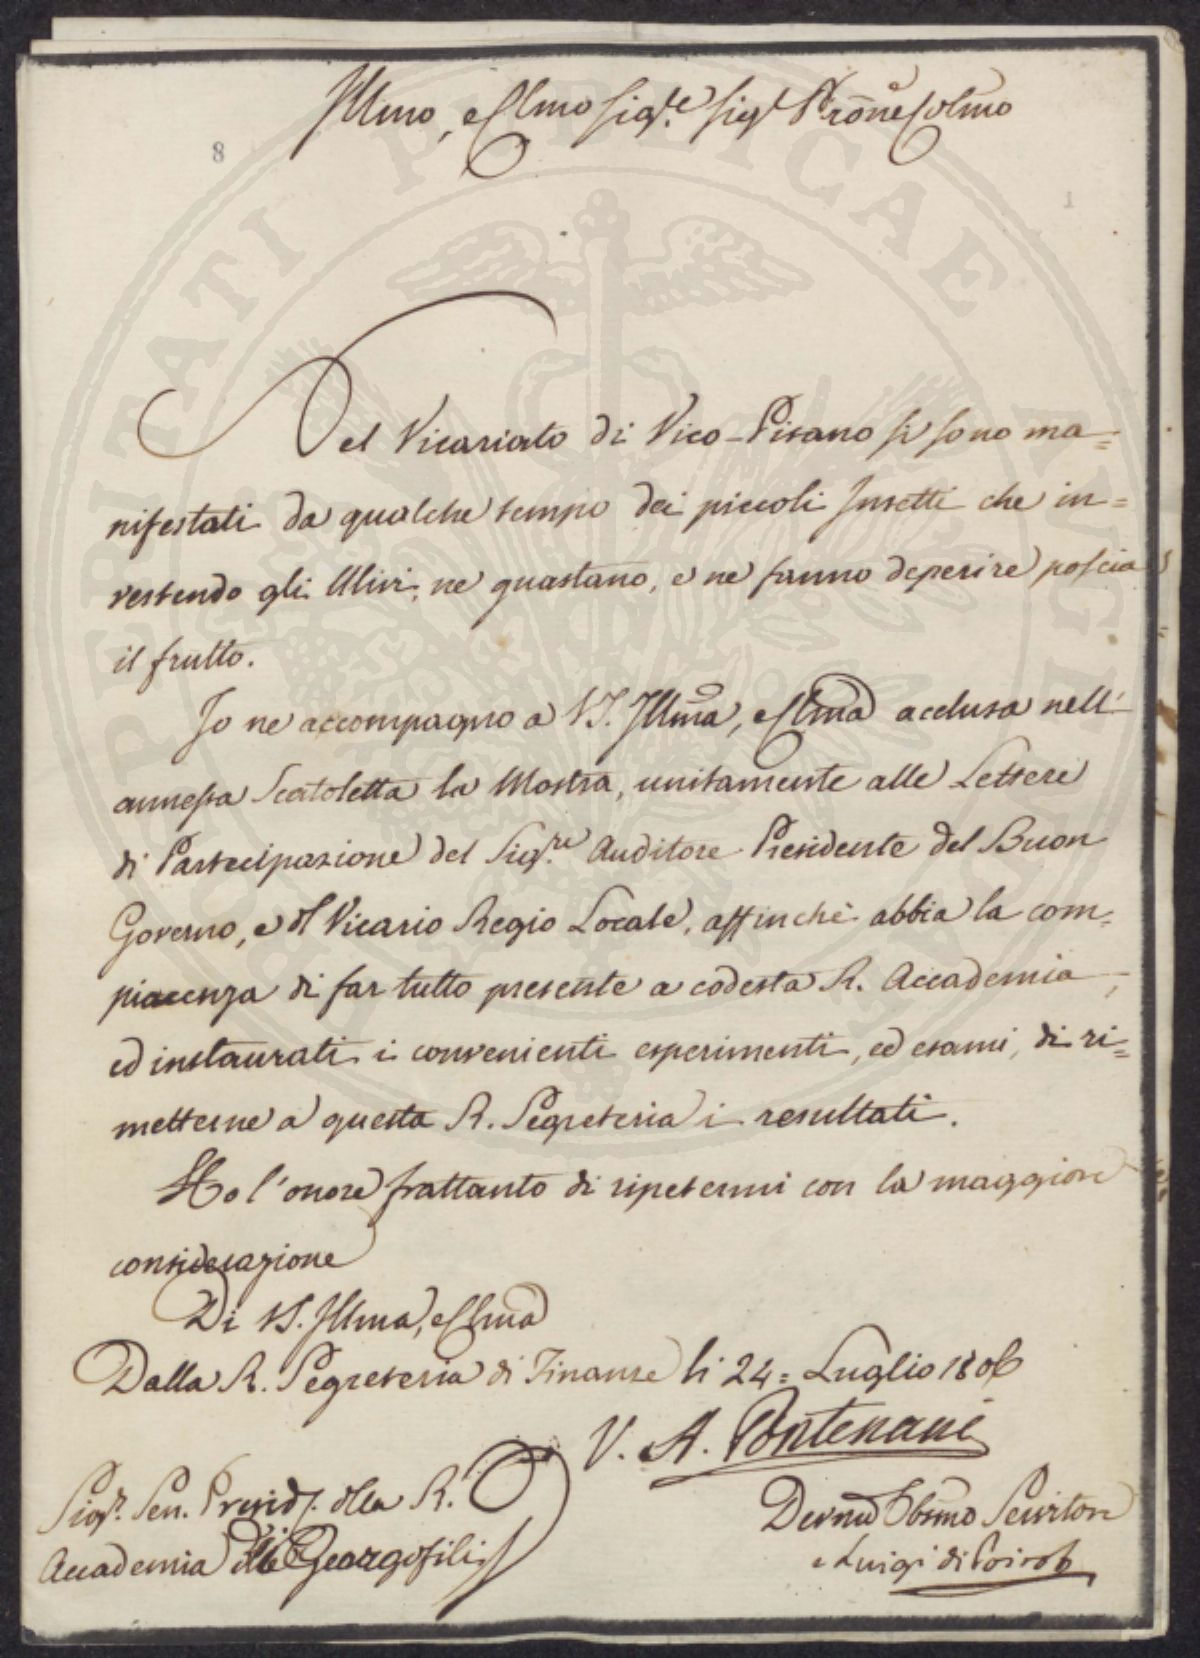 Illmo, e Clmo Sig.re Sig.r Prône Colmo
8
1
Nel Vicariato di Vico-Pisano si sono ma=
nifestati da qualche tempo dei piccoli Insetti che in=
vestendo gli Ulivi, ne guastano, e ne fanno deperire poscia
il frutto.
Io ne accompagno a VS. Illma, e Clma acclusa nell'
annessa Scatoletta la Mostra, unitamente alle Lettere
di Partecipazione del Sig.re Auditore Presidente del Buon
Governo, e del Vicario Regio Locale, affinchè abbia la com=
piacenza di far tutto presente a codesta R. Accademia,
ed instaurati i convenienti esperimenti, ed esami, di ri=
metterne a questa R. Segreteria i resultati.
Ho l'onore frattanto di ripetermi con la maggiore
considerazione
Di VS. Illma, e Clma
Dalla R. Segreteria di Finanze li 24= Luglio 1806
V. A. Pontenani
Sig.r Sen. Presid. della R.
Accademia dei Georgofili
Devmo Obbmo Servitore
Luigi di Poirot
PROSPERITATI PUBLICAE AUGENDAE